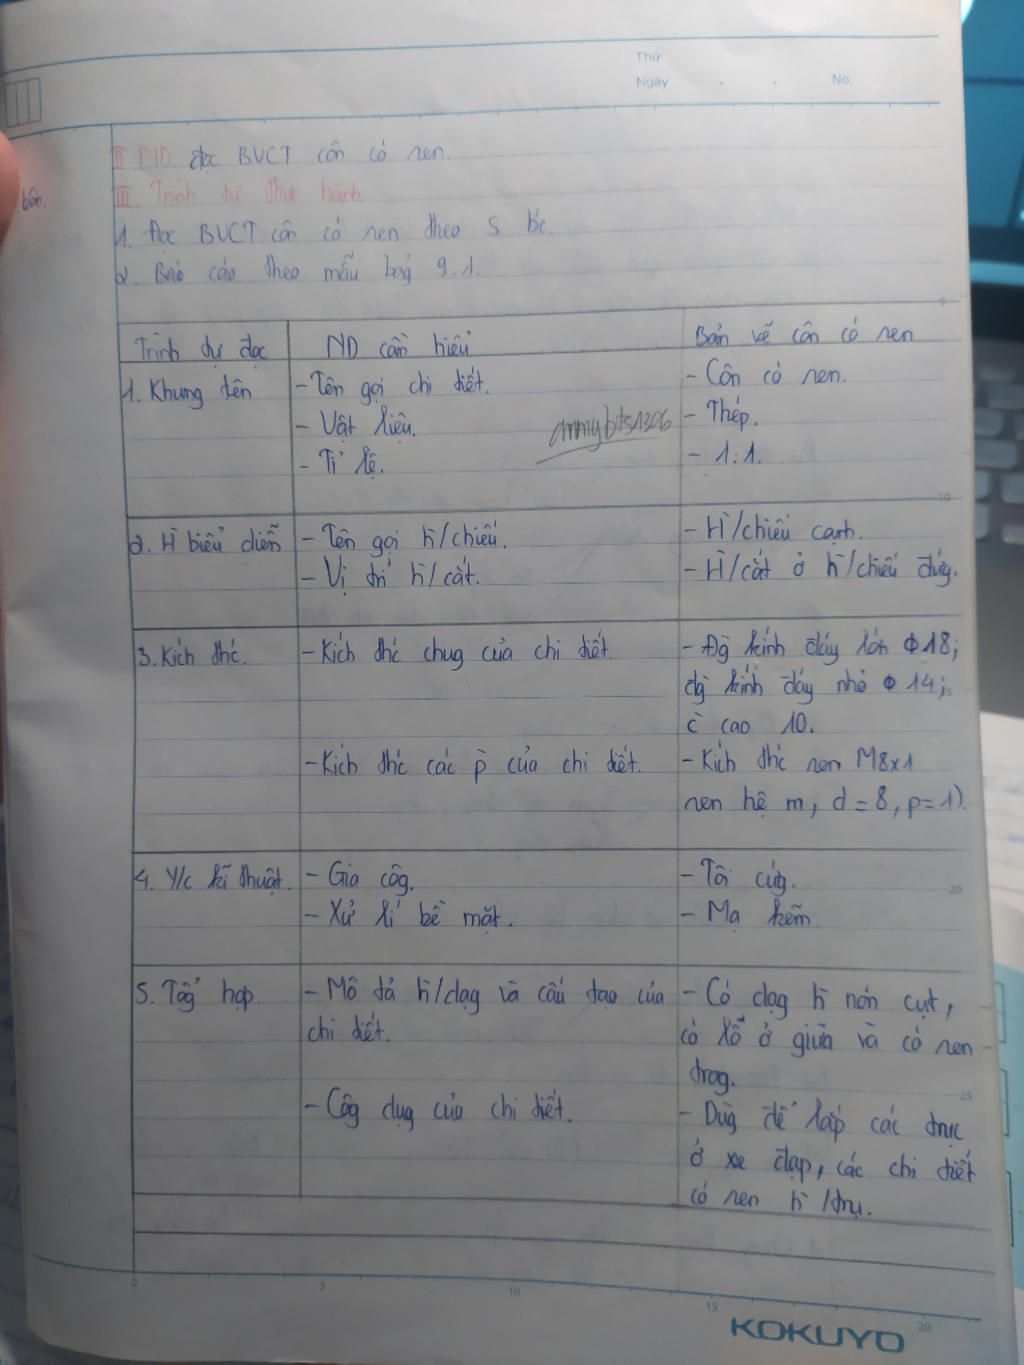 Thứ
Ngày . . No.
II ND đọc BVCT côn có ren.
bôn.
III. Trình tự thực hành.
1. Đọc BVCT côn có ren theo 5 bc.
2. Báo cáo theo mẫu bảg 9.1.
Trình tự đọc
ND cần hiểu
Bản vẽ côn có ren
1. Khung tên
- Tên gọi chi tiết.
- Vật liệu.
- Tỉ lệ.
- Côn có ren.
- Thép.
- 1:1.
2. H̀ biểu diễn
- Tên gọi h̀/chiếu.
- Vị trí h̀/cắt.
- H̀/chiếu cạnh.
- H̀/cắt ở h̀/chiếu đứg.
3. Kích thc.
- Kích thc chug của chi tiết
- Kích thc các p̀ của chi tiết.
- Đg kính đáy lớn Φ18;
đg kính đáy nhỏ Φ 14;
c̀ cao 10.
- Kích thc ren M8x1
ren hệ m, d = 8, p = 1).
4. Y/c kĩ thuật.
- Gia côg.
- Xử lí bề mặt.
- Tôi cứg.
- Mạ kẽm
5. Tổg hợp.
- Mô tả h̀/dạg và cấu tạo của
chi tiết.
- Côg dụg của chi tiết.
- Có dạg h̀ nón cụt,
có lỗ ở giữa và có ren
trog.
- Dùg để lắp các trục
ở xe đạp, các chi tiết
có ren h̀/trụ.
5
10
20
25
0 5 10 15 20
KOKUYO